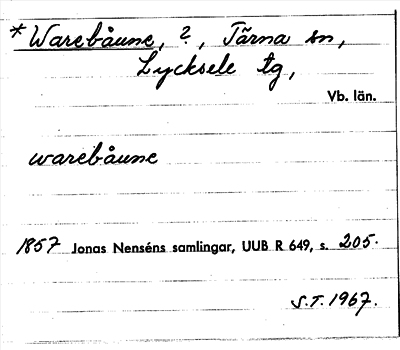 * Warebåune, ?, Tärna sn,
Lycksele tg,
Vb. län.
warebåune
1857 Jonas Nenséns samlingar, UUB R 649, s. 205.
S.T. 1967.